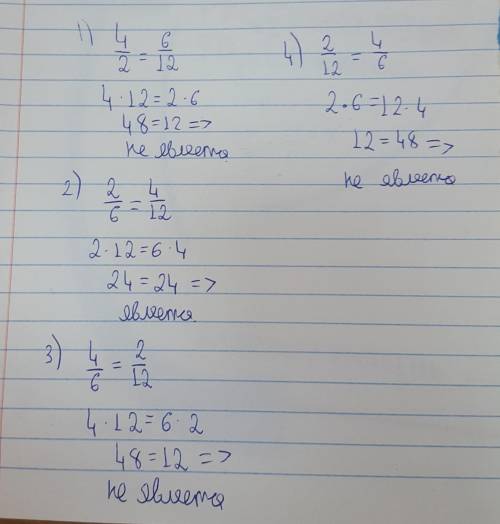 1) 4/2 = 6/12
4 · 12 = 2 · 6
48 = 12 =>
не является
2) 2/6 = 4/12
2 · 12 = 6 · 4
24 = 24 =>
является
3) 4/6 = 2/12
4 · 12 = 6 · 2
48 = 12 =>
не является
4) 2/12 = 4/6
2 · 6 = 12 · 4
12 = 48 =>
не является